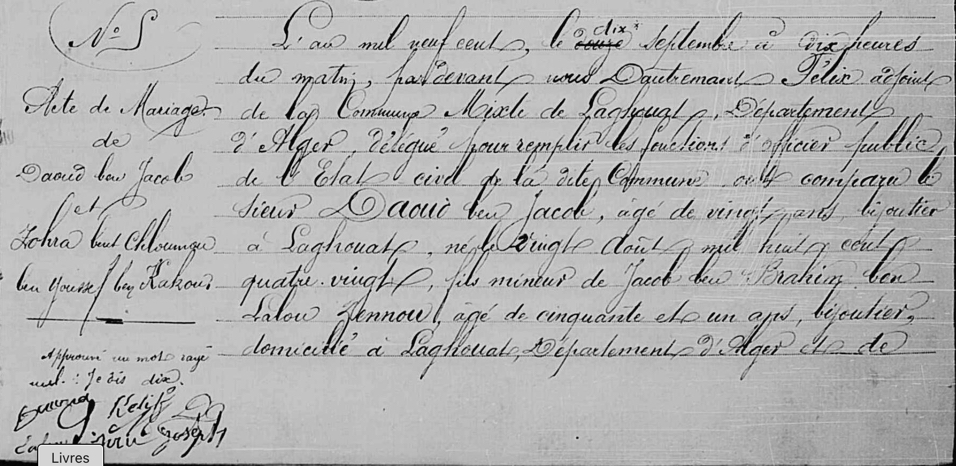 N° 5
Acte de Mariage
de
Daoud ben Jacob
et
Zohra bent Chloumou
ben Youssef ben Kakou
Approuvé un mot rayé
nul. : Je dis dix.
Joseph
L'an mil neuf cent, le douze dix septembre à dix heures
du matin, pardevant nous Dautremant Félix adjoint
de la Commune Mixte de Laghouat, Département
d'Alger, délégué pour remplir les fonctions d'officier public
de l'Etat civil de la dite Commune, ont comparu le
sieur Daoud ben Jacob, âgé de vingt ans, bijoutier
à Laghouat, né le vingt août mil huit cent
quatre-vingt, fils mineur de Jacob ben Brahim ben
Lalou Zennou, âgé de cinquante et un ans, bijoutier,
domicilié à Laghouat, Département d'Alger et de
Livres